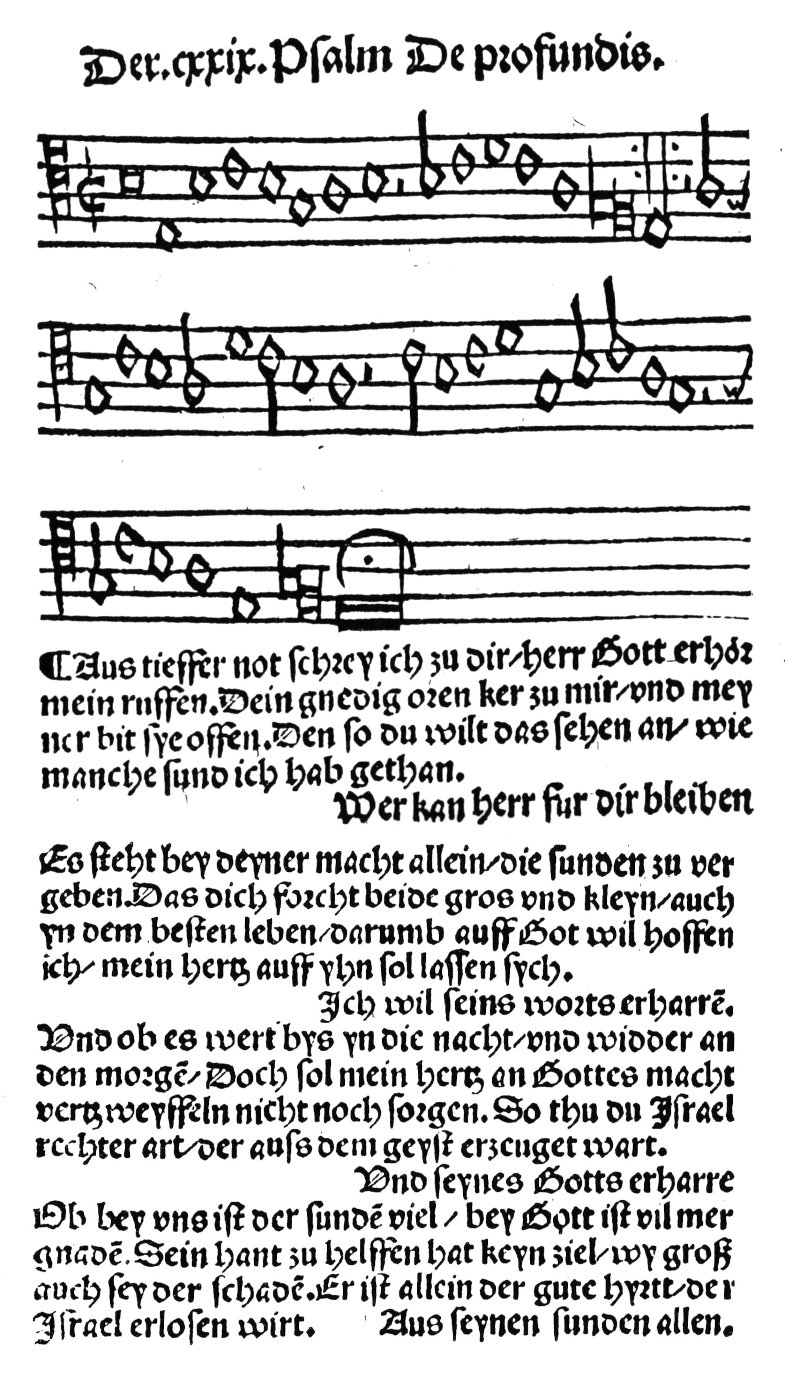 Der.cxxix.Psalm De profundis.
¶Aus tieffer not schrey ich zu dir/herr Gott erhör
mein ruffen.Dein gnedig oren ker zu mir/vnd mey
ner bit sye offen.Den so du wilt das sehen an/ wie
manche sund ich hab gethan.
Wer kan herr fur dir bleiben
Es steht bey deyner macht allein/die sunden zu ver
geben.Das dich forcht beide gros vnd kleyn/auch
yn dem besten leben/darumb auff Got wil hoffen
ich/ mein hertz auff yhn sol lassen sych.
Ich wil seins worts erharrē.
Vnd ob es wert bys yn die nacht/vnd widder an
den morgē/Doch sol mein hertz an Gottes macht
vertzweyffeln nicht noch sorgen. So thu du Israel
rechter art/der auss dem geyst erzeuget wart.
Vnd seynes Gotts erharre
Ob bey vns ist der sundē viel / bey Gott ist vil mer
gnadē.Sein hant zu helffen hat keyn ziel/wy groß
auch sey der schadē.Er ist allein der gute hyrtt/der
Israel erlosen wirt. Aus seynen sunden allen.